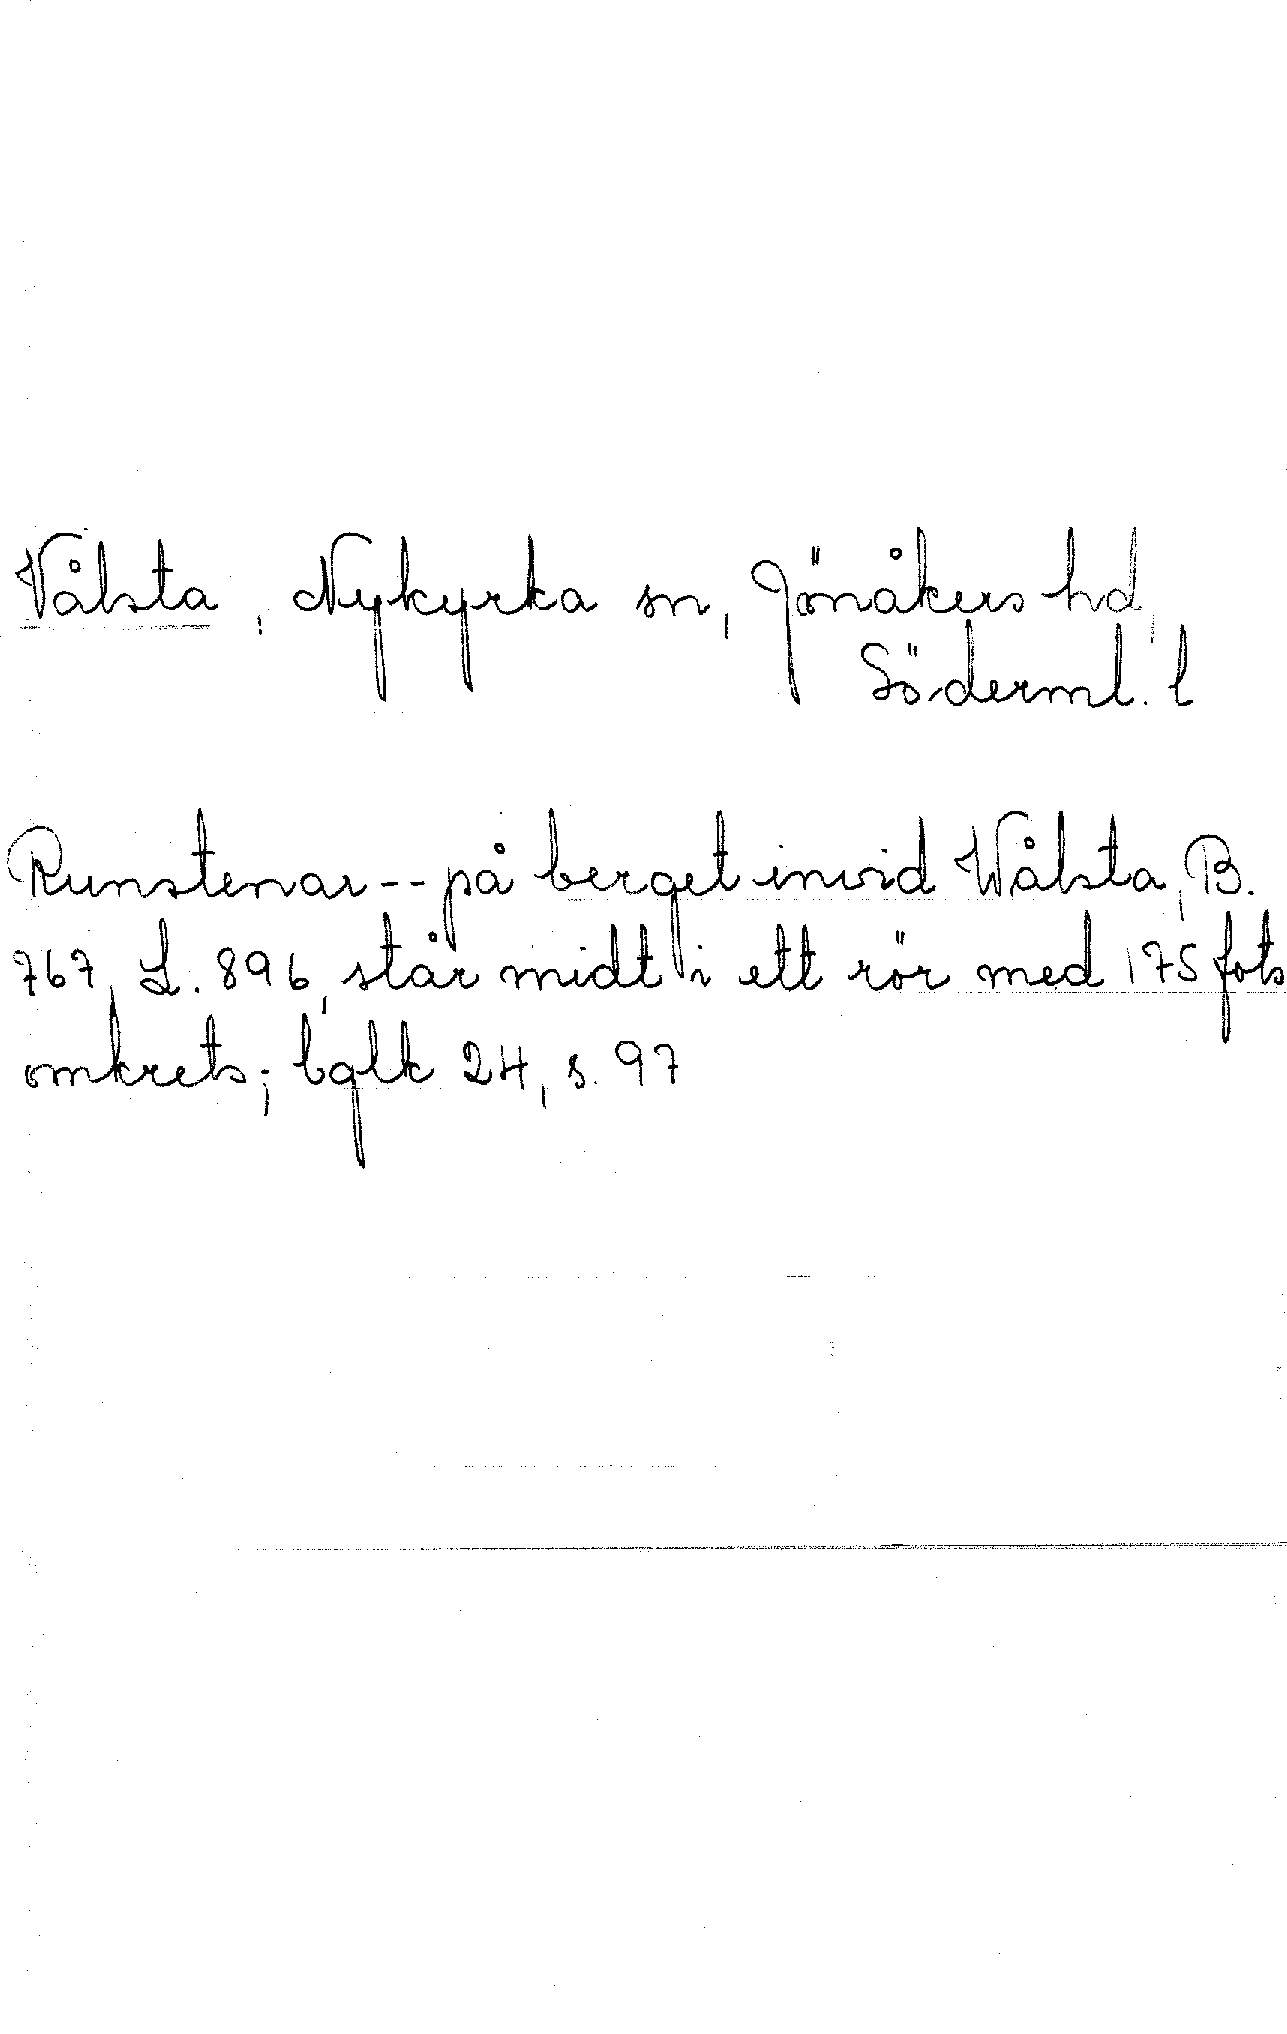 Vålsta, Nykyrka sn, Jönåkers hd,
Söderml. l
Runstenar -- på berget invid Wålsta, B.
767, L. 896, står midt i ett rör med 175 fots
omkrets; bglk 24, s. 97